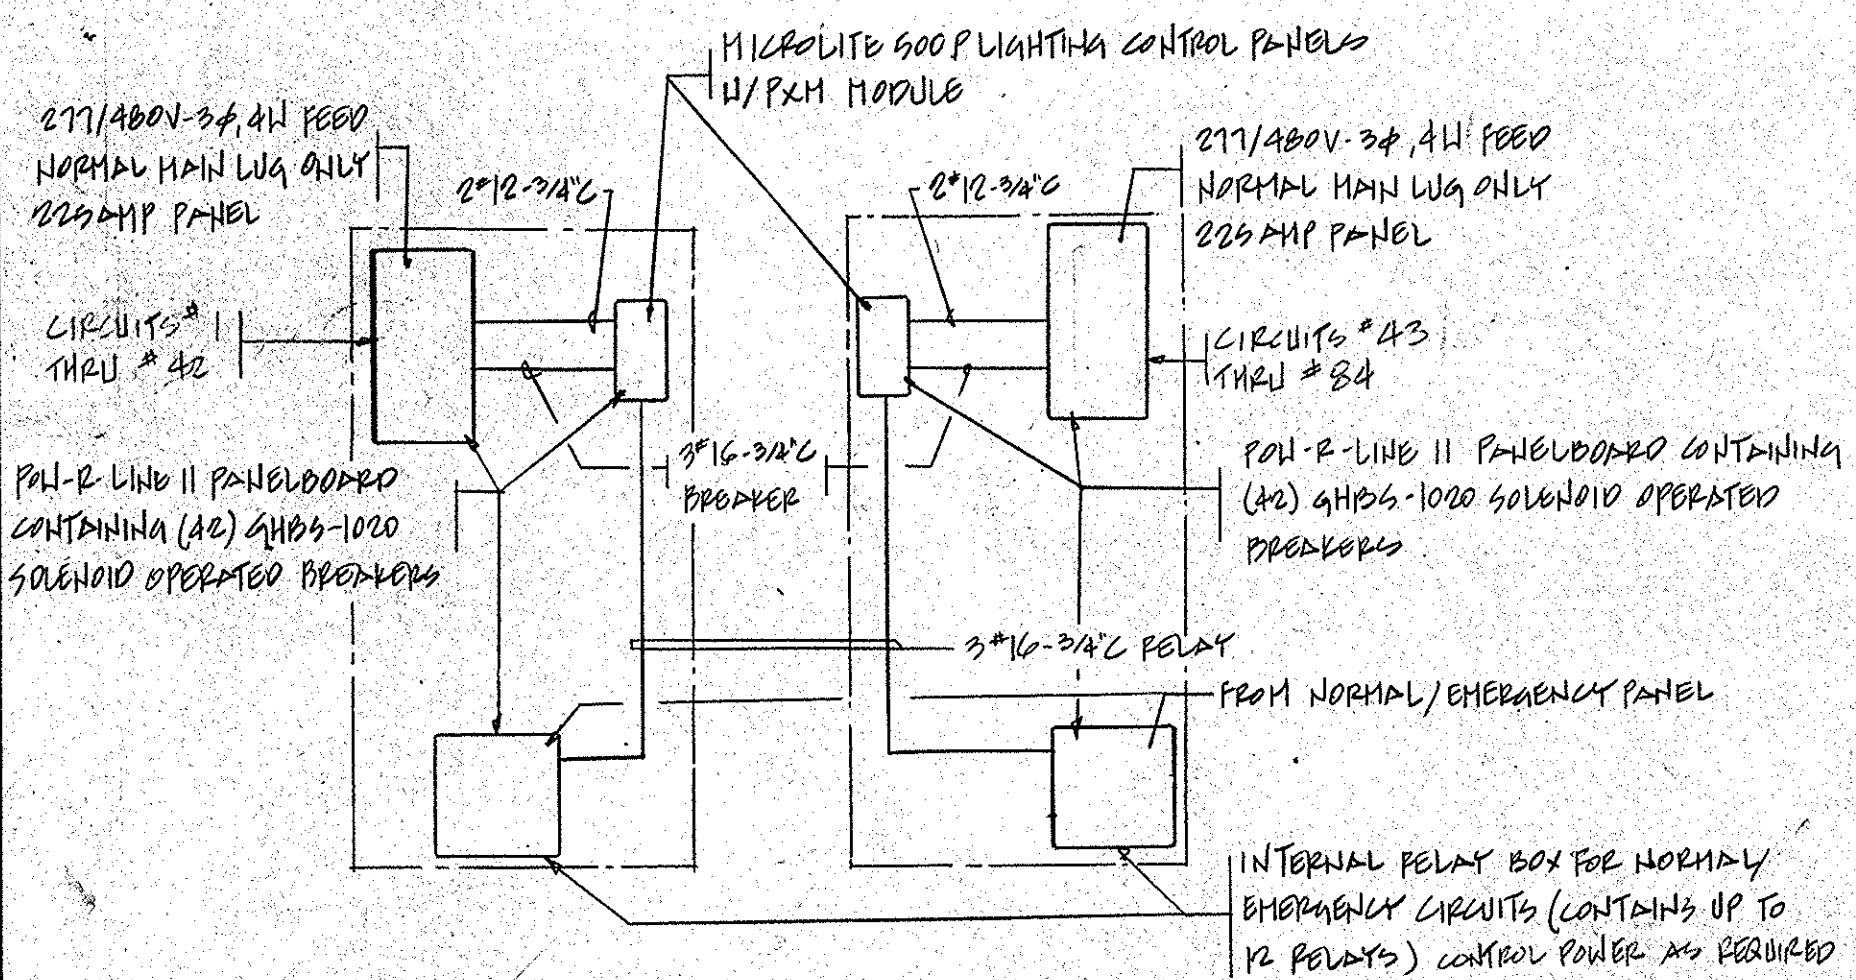 MICROLITE 500P LIGHTING CONTROL PANELS
W/PXM MODULE
277/480V-3φ,4W FEED
NORMAL MAIN LUG ONLY
225 AMP PANEL
2#12-3/4"C
2#12-3/4"C
277/480V-3φ,4W FEED
NORMAL MAIN LUG ONLY
225 AMP PANEL
CIRCUITS # 1
THRU # 42
CIRCUITS # 43
THRU # 84
3#16-3/4"C
BREAKER
POW-R-LINE II PANELBOARD
CONTAINING (42) GHBS-1020
SOLENOID OPERATED BREAKERS
POW-R-LINE II PANELBOARD CONTAINING
(42) GHBS-1020 SOLENOID OPERATED
BREAKERS
3#16-3/4"C RELAY
FROM NORMAL/EMERGENCY PANEL
INTERNAL RELAY BOX FOR NORMAL/
EMERGENCY CIRCUITS (CONTAINS UP TO
12 RELAYS) CONTROL POWER AS REQUIRED